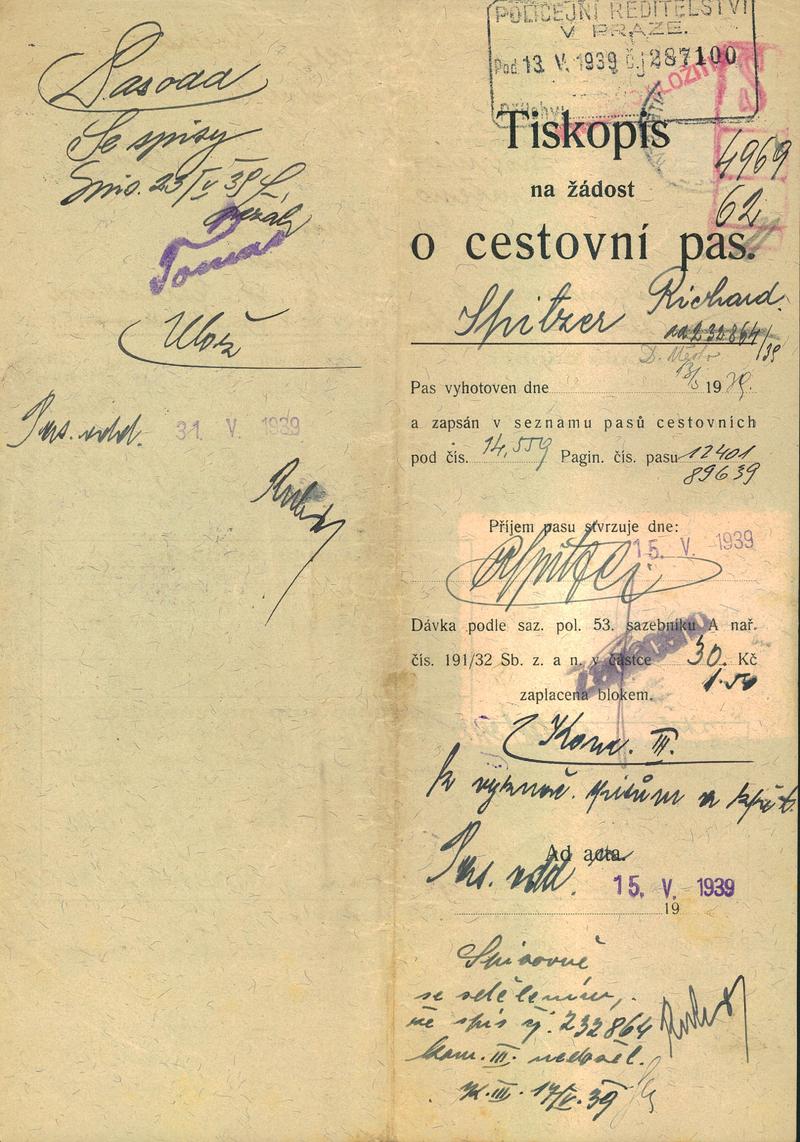 Se spisy
Tomas
Ulož
Prs. odd. 31. V. 1939
POLICEJNÍ ŘEDITELSTVÍ
V PRAZE.
Pod 13. V. 1939 čj 287100
Přílohy:
Tiskopis
4969
na žádost
62
o cestovní pas.
Spitzer Richard
232864/39
Pas vyhotoven dne 13/5 1939.
a zapsán v seznamu pasů cestovních
pod čís. 14,559 Pagin. čís. pasu 12401
89639
Příjem pasu stvrzuje dne:
15. V. 1939
Dávka podle saz. pol. 53. sazebníku A nař.
čís. 191/32 Sb. z. a n. v částce 30. Kč
1.50
zaplacena blokem.
Kom. III.
k
Ad acta.
Prs. odd. 15. V. 1939
19
Spisovně
se sdělením,
že spis čj. 232864
kom. III. nedošel.
K. III. 17/V. 39